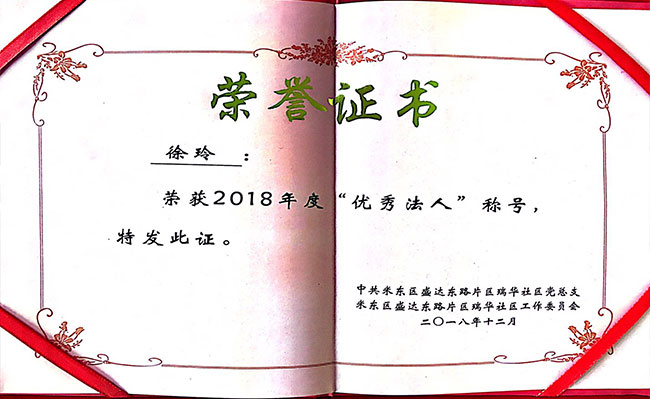 荣誉证书
徐玲：
荣获2018年度“优秀法人”称号，
特发此证。
中共米东区盛达东路片区瑞华社区党总支
米东区盛达东路片区瑞华社区工作委员会
二〇一八年十二月